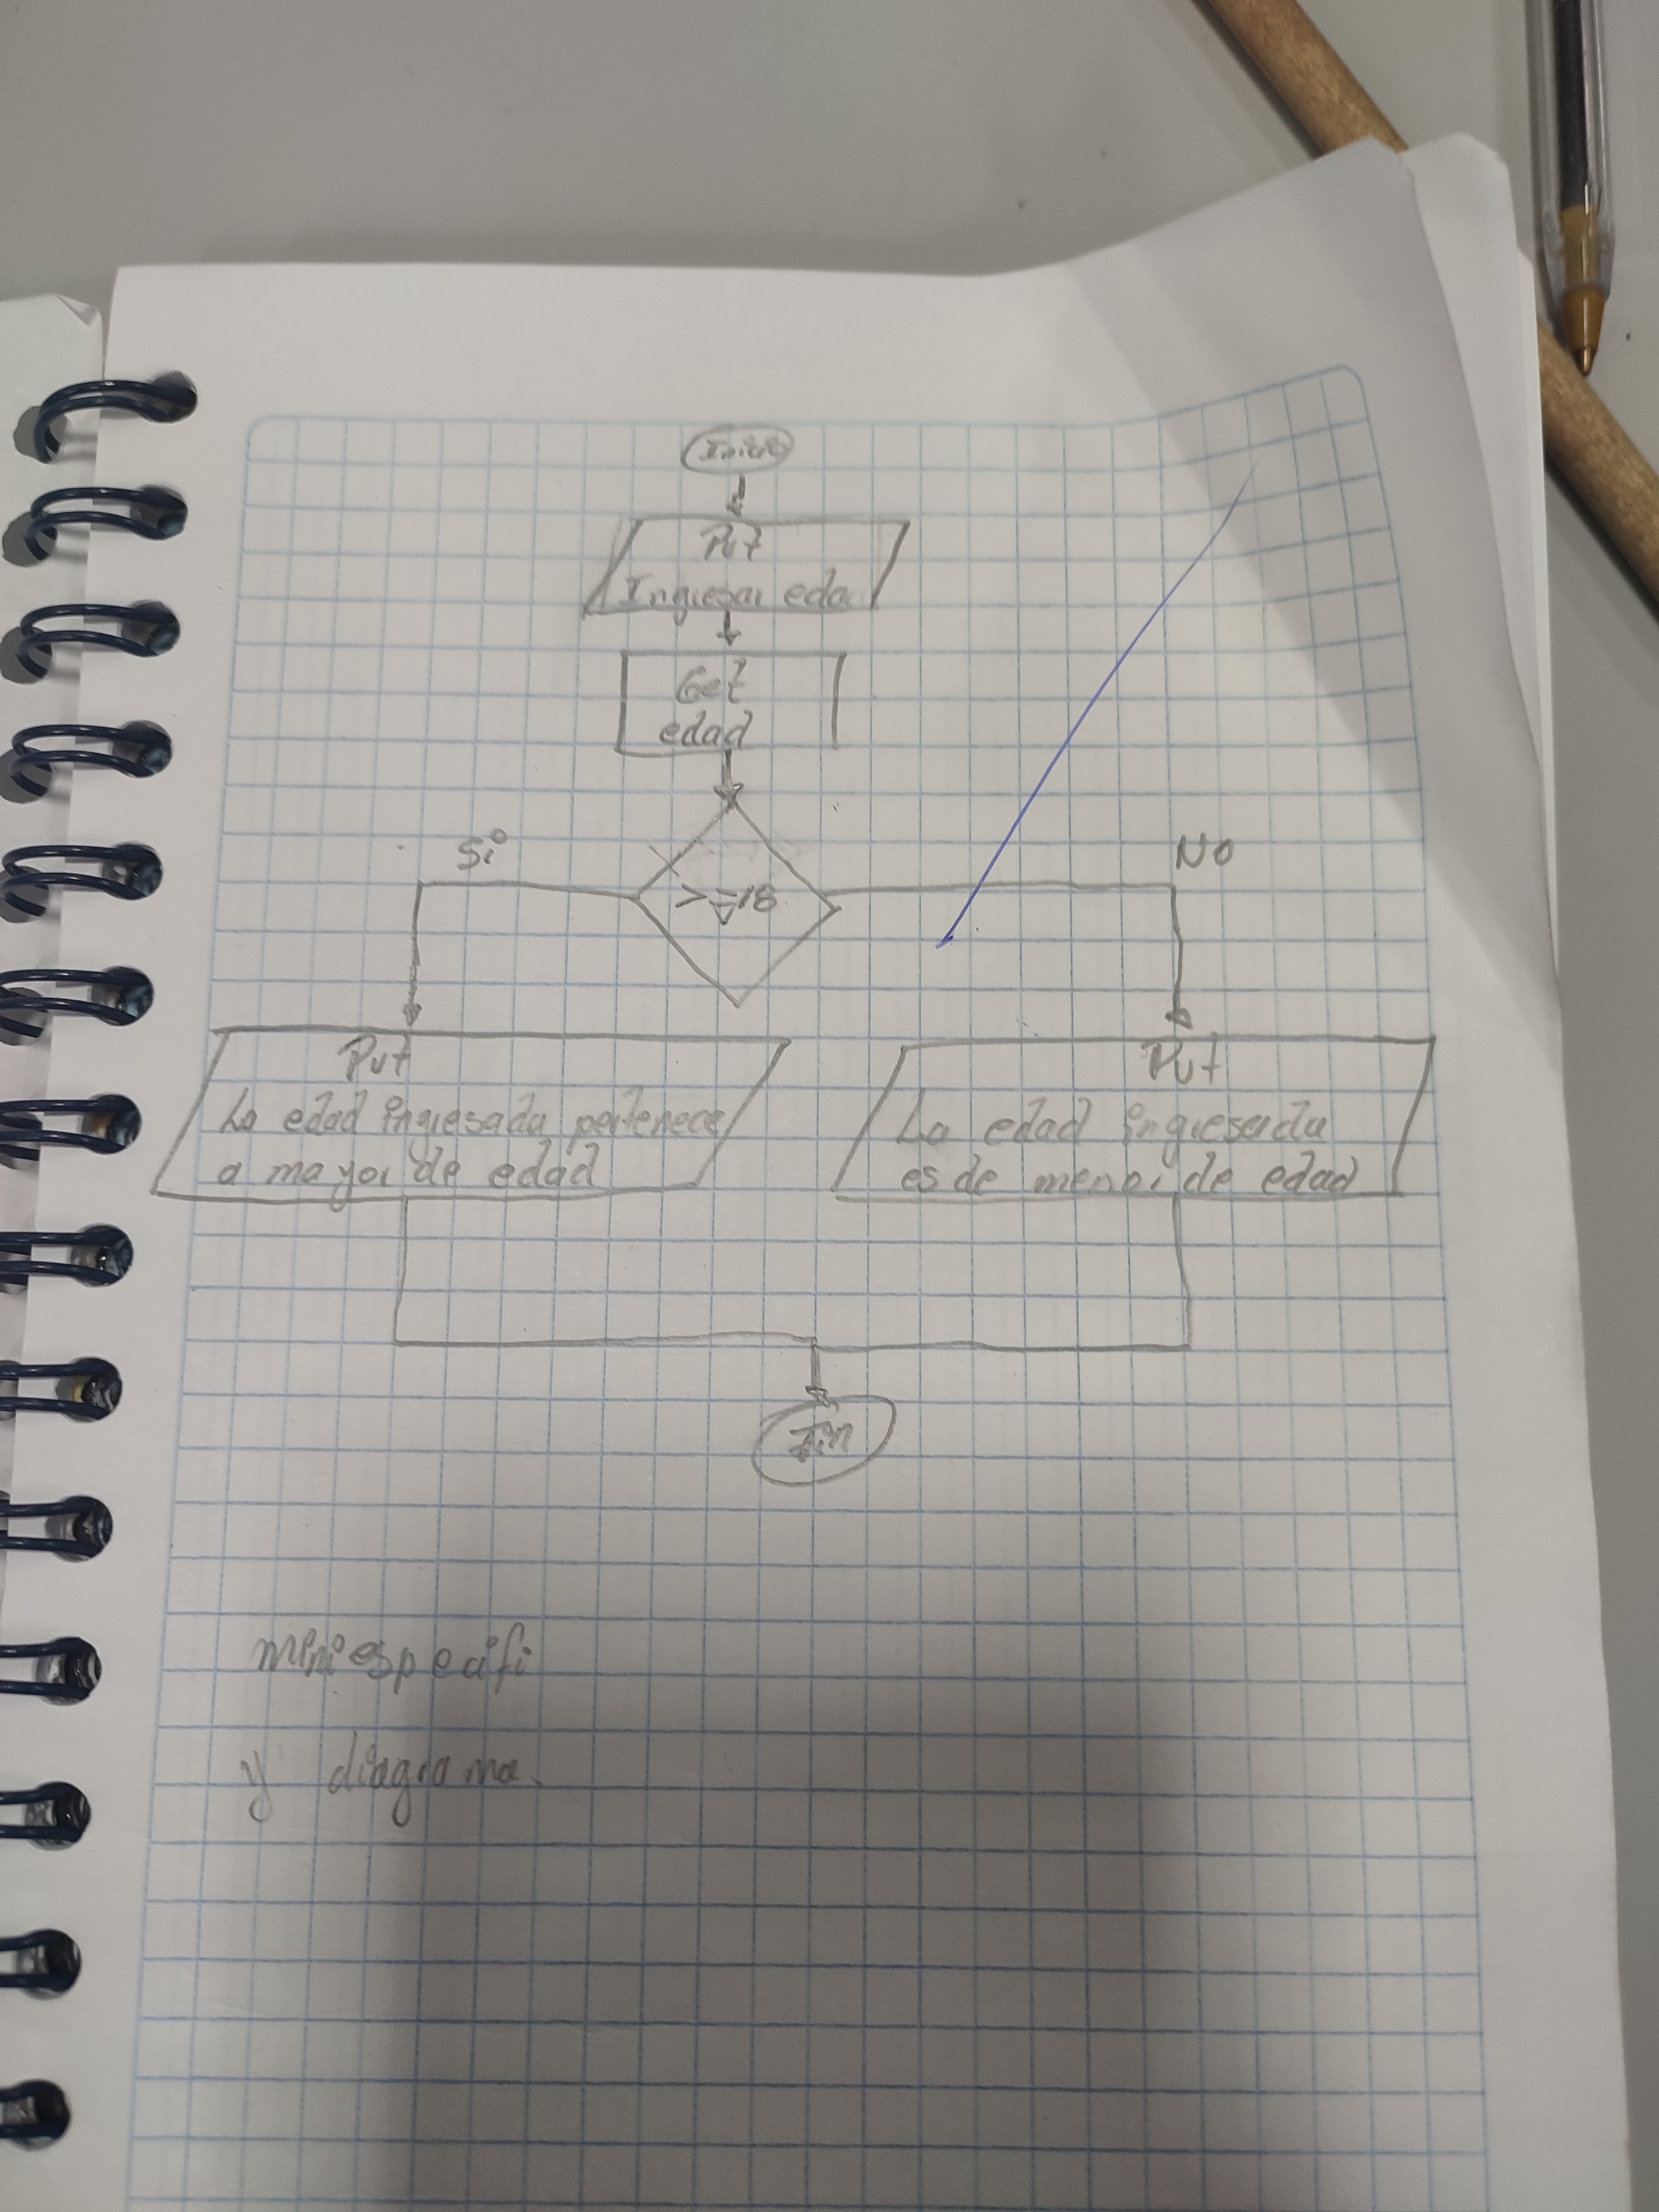 Inicio
Put
Ingresar edad
Get
edad
Si
No
>=18
Put
La edad ingresada pertenece
a mayor de edad
Put
La edad ingresada
es de menor de edad
Fin
miniespecifi
y diagrama.